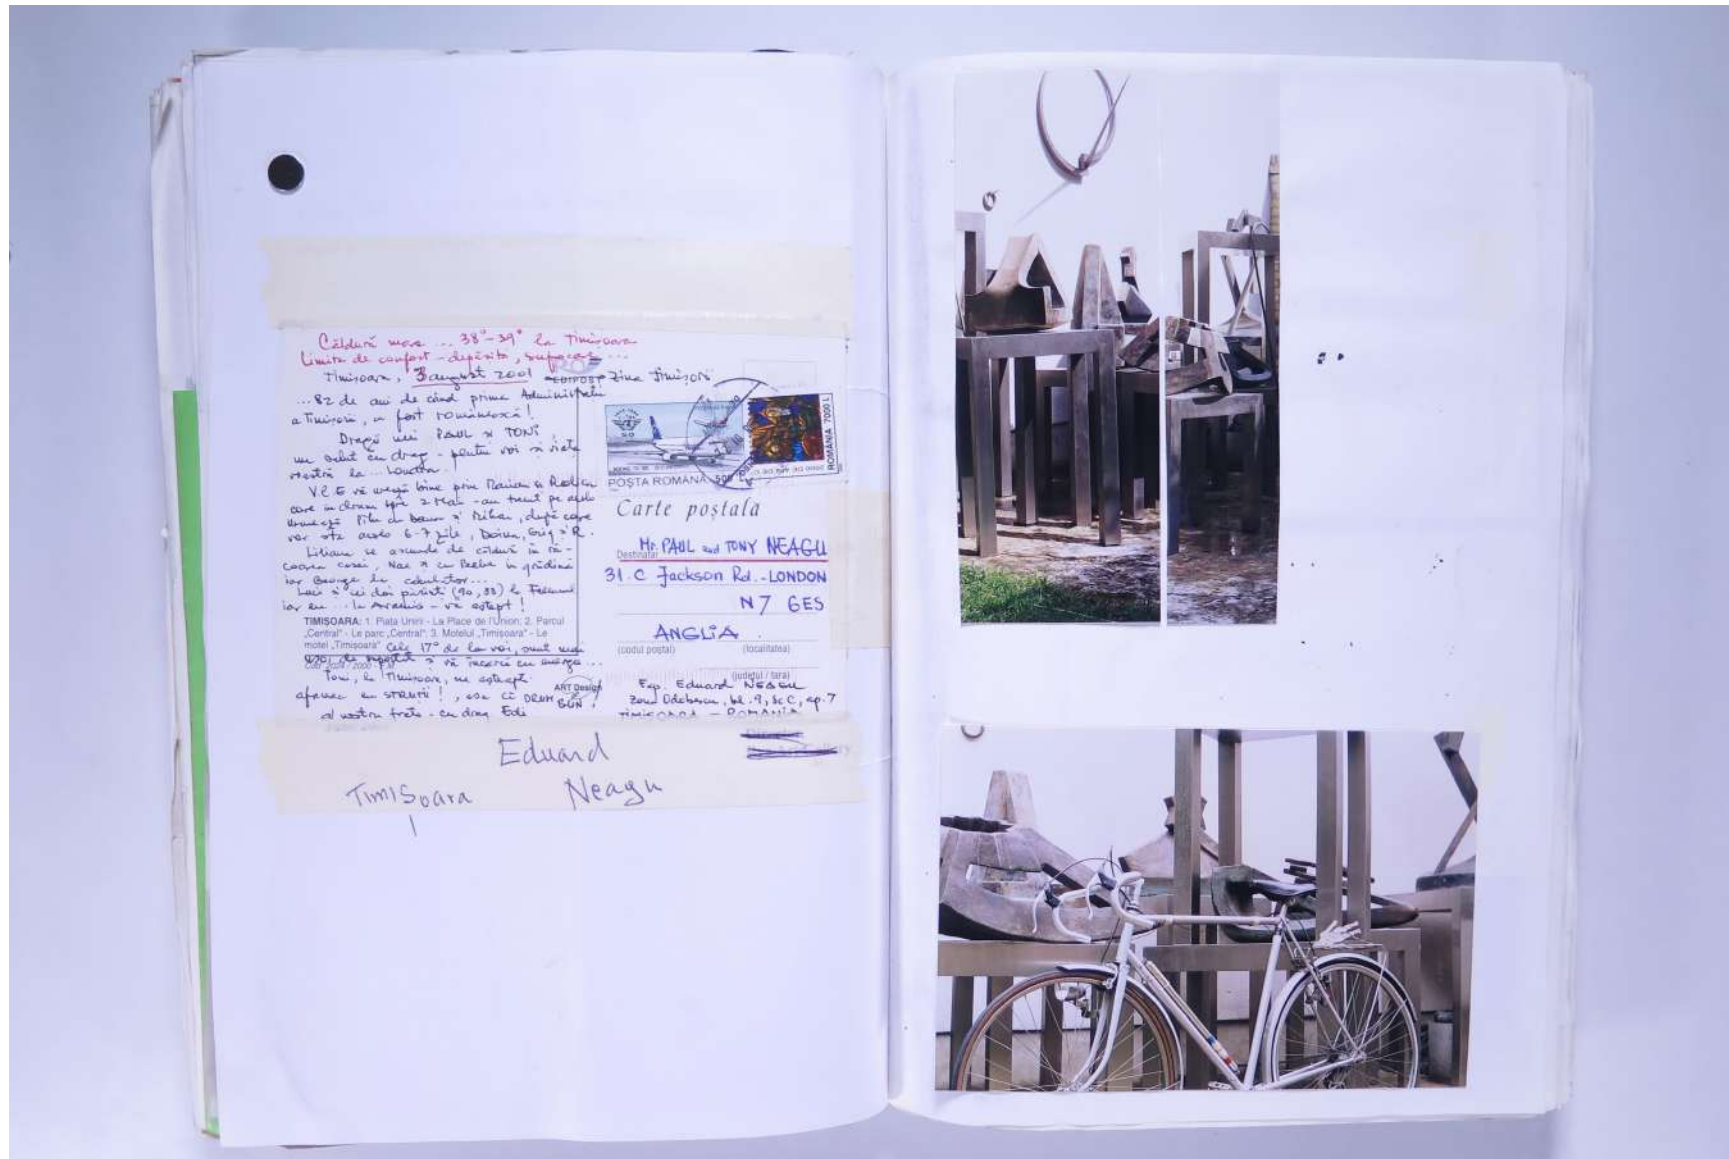 Căldură mare ... 38°-39° la Timișoara
Limita de confort - depășită, sufocare ...
Timișoara, 3 august 2001
EDIPOST
Ziua Timișorii
... 82 de ani de când prima Administrație
a Timișorii, a fost românească!
Dragii mei PAUL și TONI,
vă salut cu drag - pentru voi și viața
voastră la ... Londra.
V.R.E vă urează bine prin Marian și Rodica
care în drum spre 2 Mai - au trecut pe acolo
urmează și Mihai, după care
vor sta acolo 6-7 zile, Doina, Grig și R.
Liliana se ascunde de căldură în ră-
coarea casei, Nae și cu Bebe în grădină
iar George la calculator...
(90, 88) la
iar eu ... la Aramis - vă aștept!
TIMIȘOARA: 1. Piața Unirii - La Place de l'Union; 2. Parcul
„Central" - Le parc „Central"; 3. Motelul „Timișoara" - Le
motel „Timișoara"
Cele 17° de la voi, sunt mai
și vă încarcă cu energie ...
Toni, la Timișoara, ne așteaptă
afaceri cu STRUȚII!, așa că DRUM BUN!
al vostru frate - cu drag Edi
ART Design
POȘTA ROMÂNĂ 500 L
ROMÂNIA 7000 L
2000 DE ANI DE
Carte poștală
Destinatar
Mr. PAUL and TONY NEAGU
31.C Jackson Rd. - LONDON
N7 6ES
ANGLIA
(codul poștal) (localitatea)
(județul / țara)
Exp. Eduard NEAGU
Zona Odobescu, bl. 9, Sc C, ap. 7
TIMIȘOARA - ROMÂNIA
Eduard
Timișoara Neagu